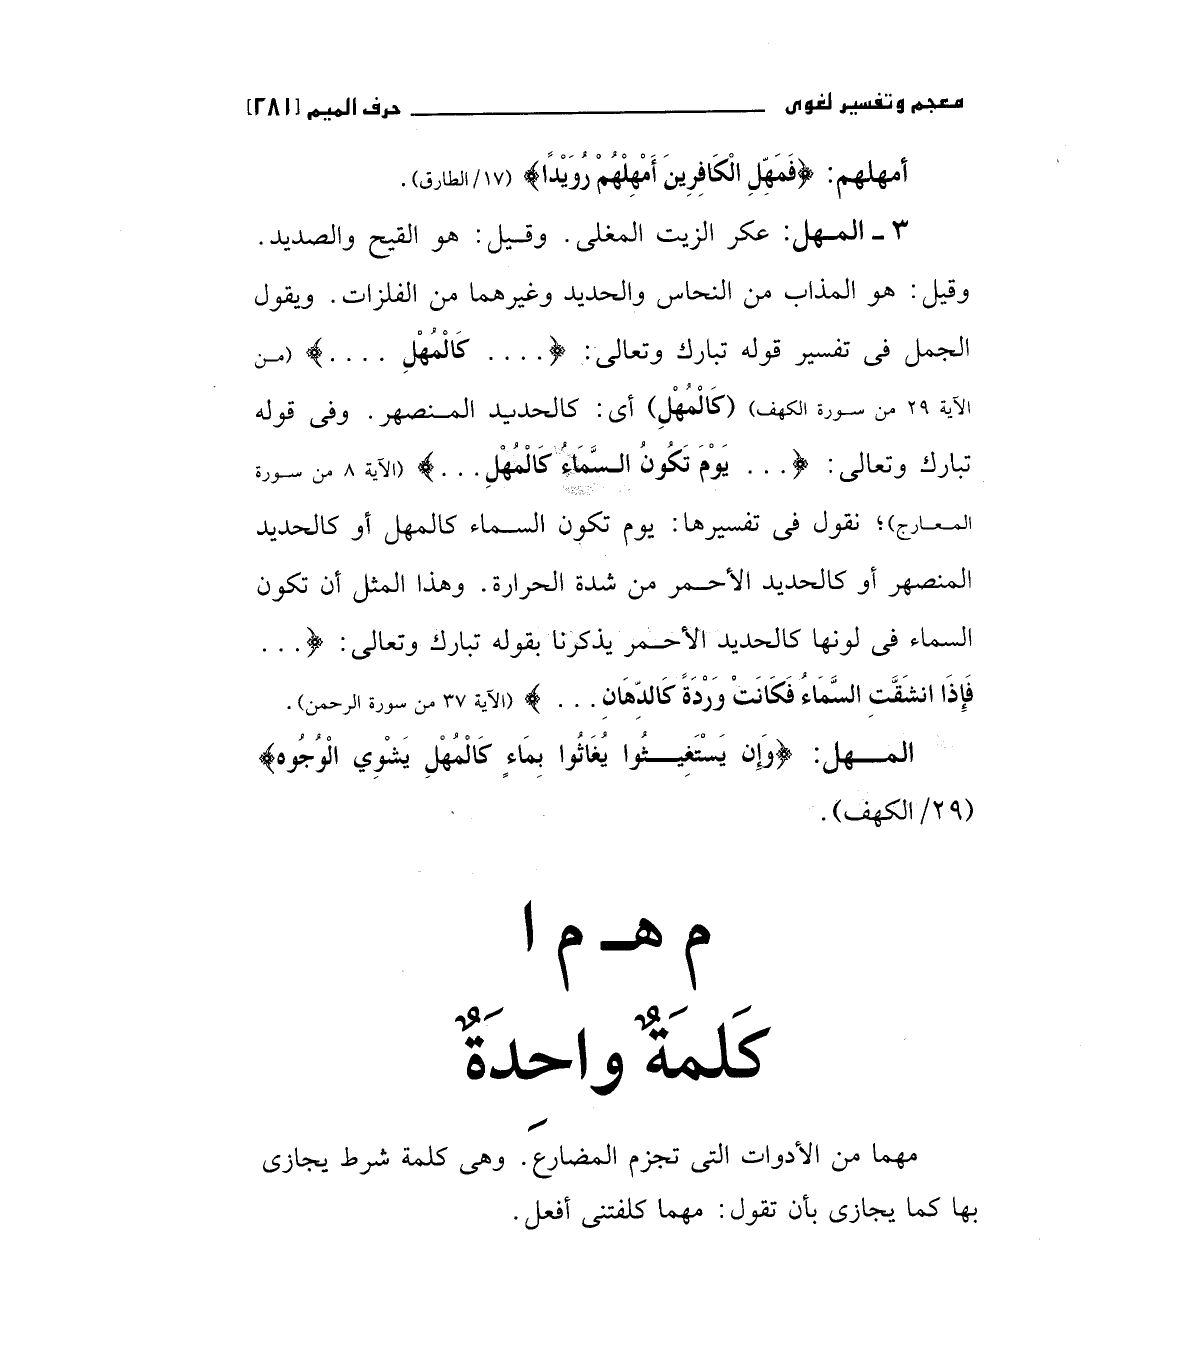 معجم وتفسير لغوى ــــــــــ حرف الميم [٢٨١]
أمهلهم: ﴿فَمَهِّلِ الْكَافِرِينَ أَمْهِلْهُمْ رُوَيْدًا﴾ (١٧/ الطارق).
٣ ـ المـهل: عكر الزيت المغلى. وقـيل: هو القيح والصديد.
وقيل: هو المذاب من النحاس والحديد وغيرهما من الفلزات. ويقول
الجمل فى تفسير قوله تبارك وتعالى: ﴿.... كَالْمُهْلِ ....﴾ (مـن
الآية ٢٩ من سـورة الكهف) (كَالْمُهْلِ) أى: كالحديد المـنصهر. وفى قوله
تبارك وتعالى: ﴿... يَوْمَ تَكُونُ السَّمَاءُ كَالْمُهْلِ...﴾ (الآية ٨ من سـورة
المـعـارج)؛ نقول فى تفسيرها: يوم تكون السـماء كالمهل أو كالحديد
المنصهر أو كالحديد الأحـمر من شدة الحرارة. وهذا المثل أن تكون
السماء فى لونها كالحديد الأحـمر يذكرنا بقوله تبارك وتعالى: ﴿...
فَإِذَا انشَقَّتِ السَّمَاءُ فَكَانَتْ وَرْدَةً كَالدِّهَانِ...﴾ (الآية ٣٧ من سورة الرحمن).
المـــهل: ﴿وَإِن يَسْتَغِيـثُوا يُغَاثُوا بِمَاءٍ كَالْمُهْلِ يَشْوِي الْوُجُوه﴾
(٢٩/ الكهف).
م هـ م ا
كَلمَةٌ واحدَةٌ
مهما من الأدوات التى تجزم المضارعَ. وهى كلمة شرط يجازى
بها كما يجازى بأن تقول: مهما كلفتنى أفعل.